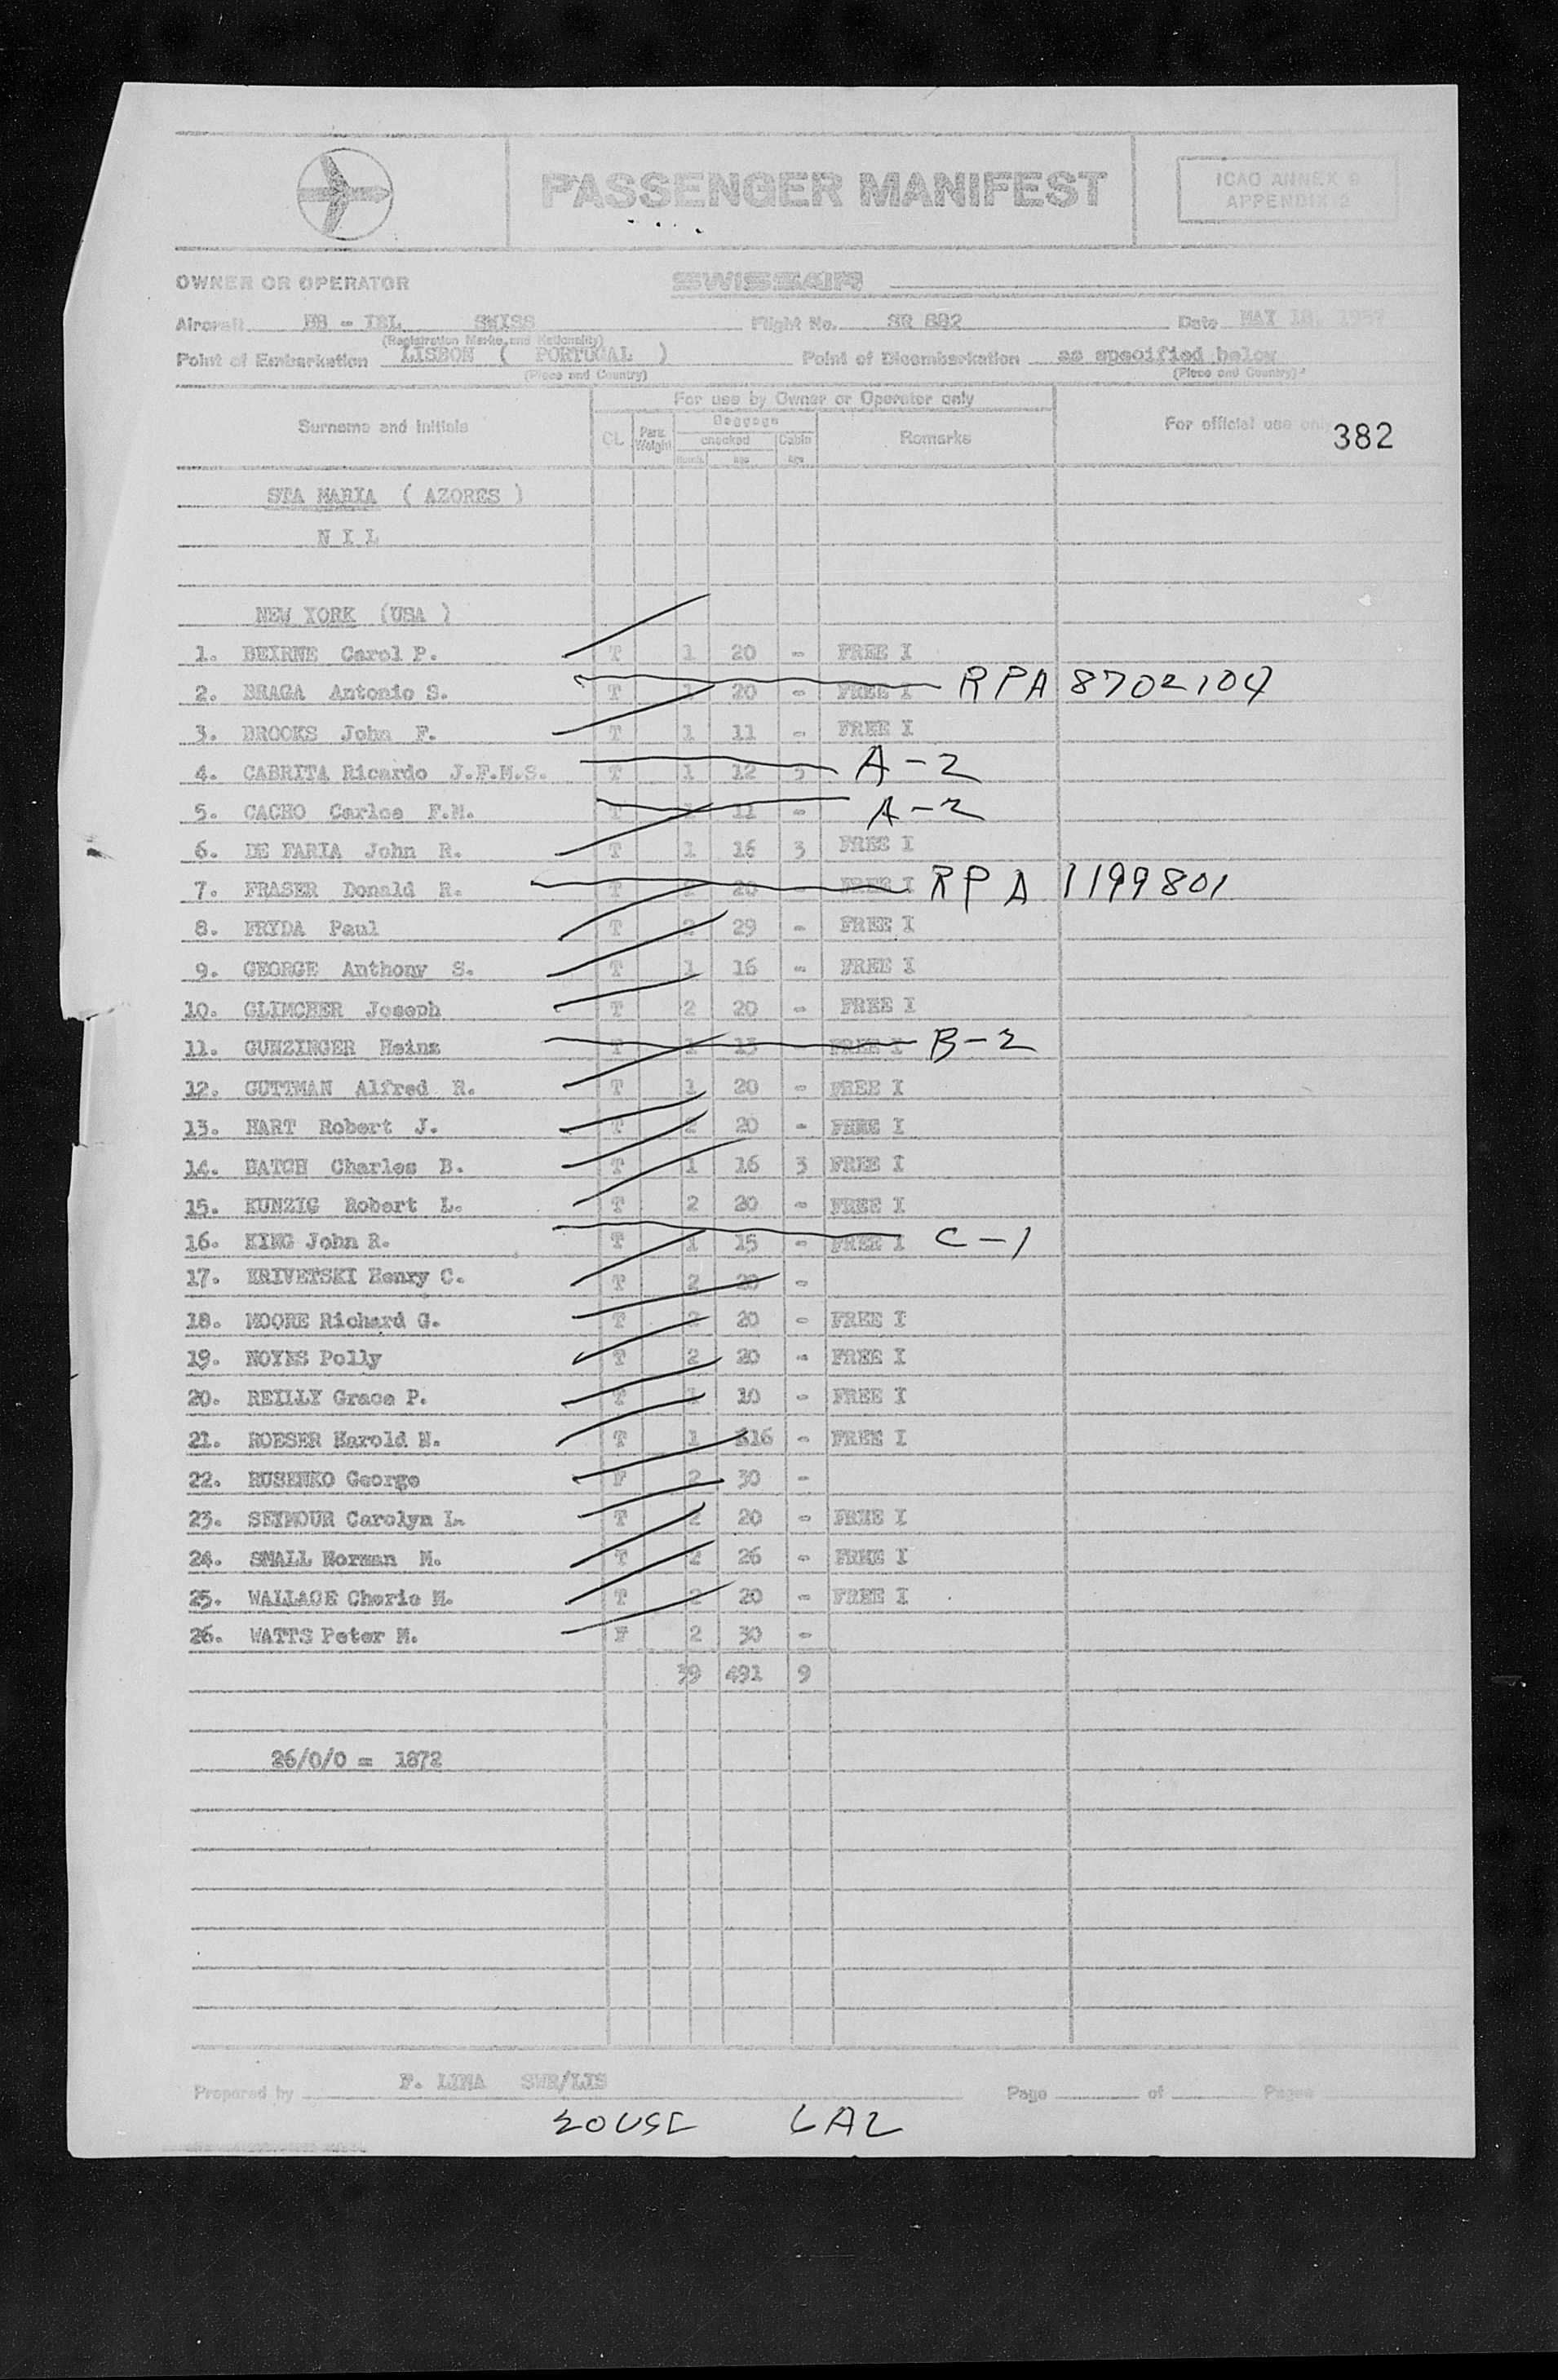 PASSENGER MANIFEST
ICAO ANNEX 9
APPENDIX 2
OWNER OR OPERATOR SWISSAIR
Aircraft HB - IBL SWISS Flight No. SR 882 Date MAY 18, 1957
(Registration Marks and Nationality)
Point of Embarkation LISBON ( PORTUGAL ) Point of Disembarkation as specified below
(Place and Country) (Place and Country)
For use by Owner or Operator only
Surname and initials CL Pass. Weight Baggage checked Cabin Remarks For official use only
Numb. kgs kgs
382
STA MARIA ( AZORES )
N I L
NEW YORK (USA )
1. BEIRNE Carol P. T 1 20 - FREE I
2. BRAGA Antonio S. T 1 20 - FREE I RPA 8702104
3. BROOKS John F. T 1 11 - FREE I
4. CABRITA Ricardo J.F.M.S. T 1 12 3 A-2
5. CACHO Carlos F.M. T 1 12 - A-2
6. DE FARIA John R. T 1 16 3 FREE I
7. FRASER Donald R. T 2 20 - FREE I RPA 1199801
8. FRYDA Paul T 2 29 - FREE I
9. GEORGE Anthony S. T 1 16 - FREE I
10. GLIMCHER Joseph T 2 20 - FREE I
11. GUNZINGER Heinz T 1 13 FREE I B-2
12. GUTTMAN Alfred R. T 1 20 - FREE I
13. HART Robert J. T 2 20 - FREE I
14. HATCH Charles B. T 1 16 3 FREE I
15. KUNZIG Robert L. T 2 20 - FREE I
16. KING John R. T 1 15 - FREE I C-1
17. KRIVETSKI Henry C. T 2 20 -
18. MOORE Richard G. T 2 20 - FREE I
19. NOYES Polly T 2 20 - FREE I
20. REILLY Grace P. T 1 10 - FREE I
21. ROESER Harold N. T 1 16 - FREE I
22. RUSENKO George F 2 30 -
23. SEYMOUR Carolyn L. T 2 20 - FREE I
24. SMALL Norman M. T 2 26 - FREE I
25. WALLACE Cherie M. T 2 20 - FREE I
26. WATTS Peter M. F 2 30 -
39 491 9
26/0/0 = 1872
Prepared by F. LIMA SWR/LIS Page of Pages
20USC 6A2